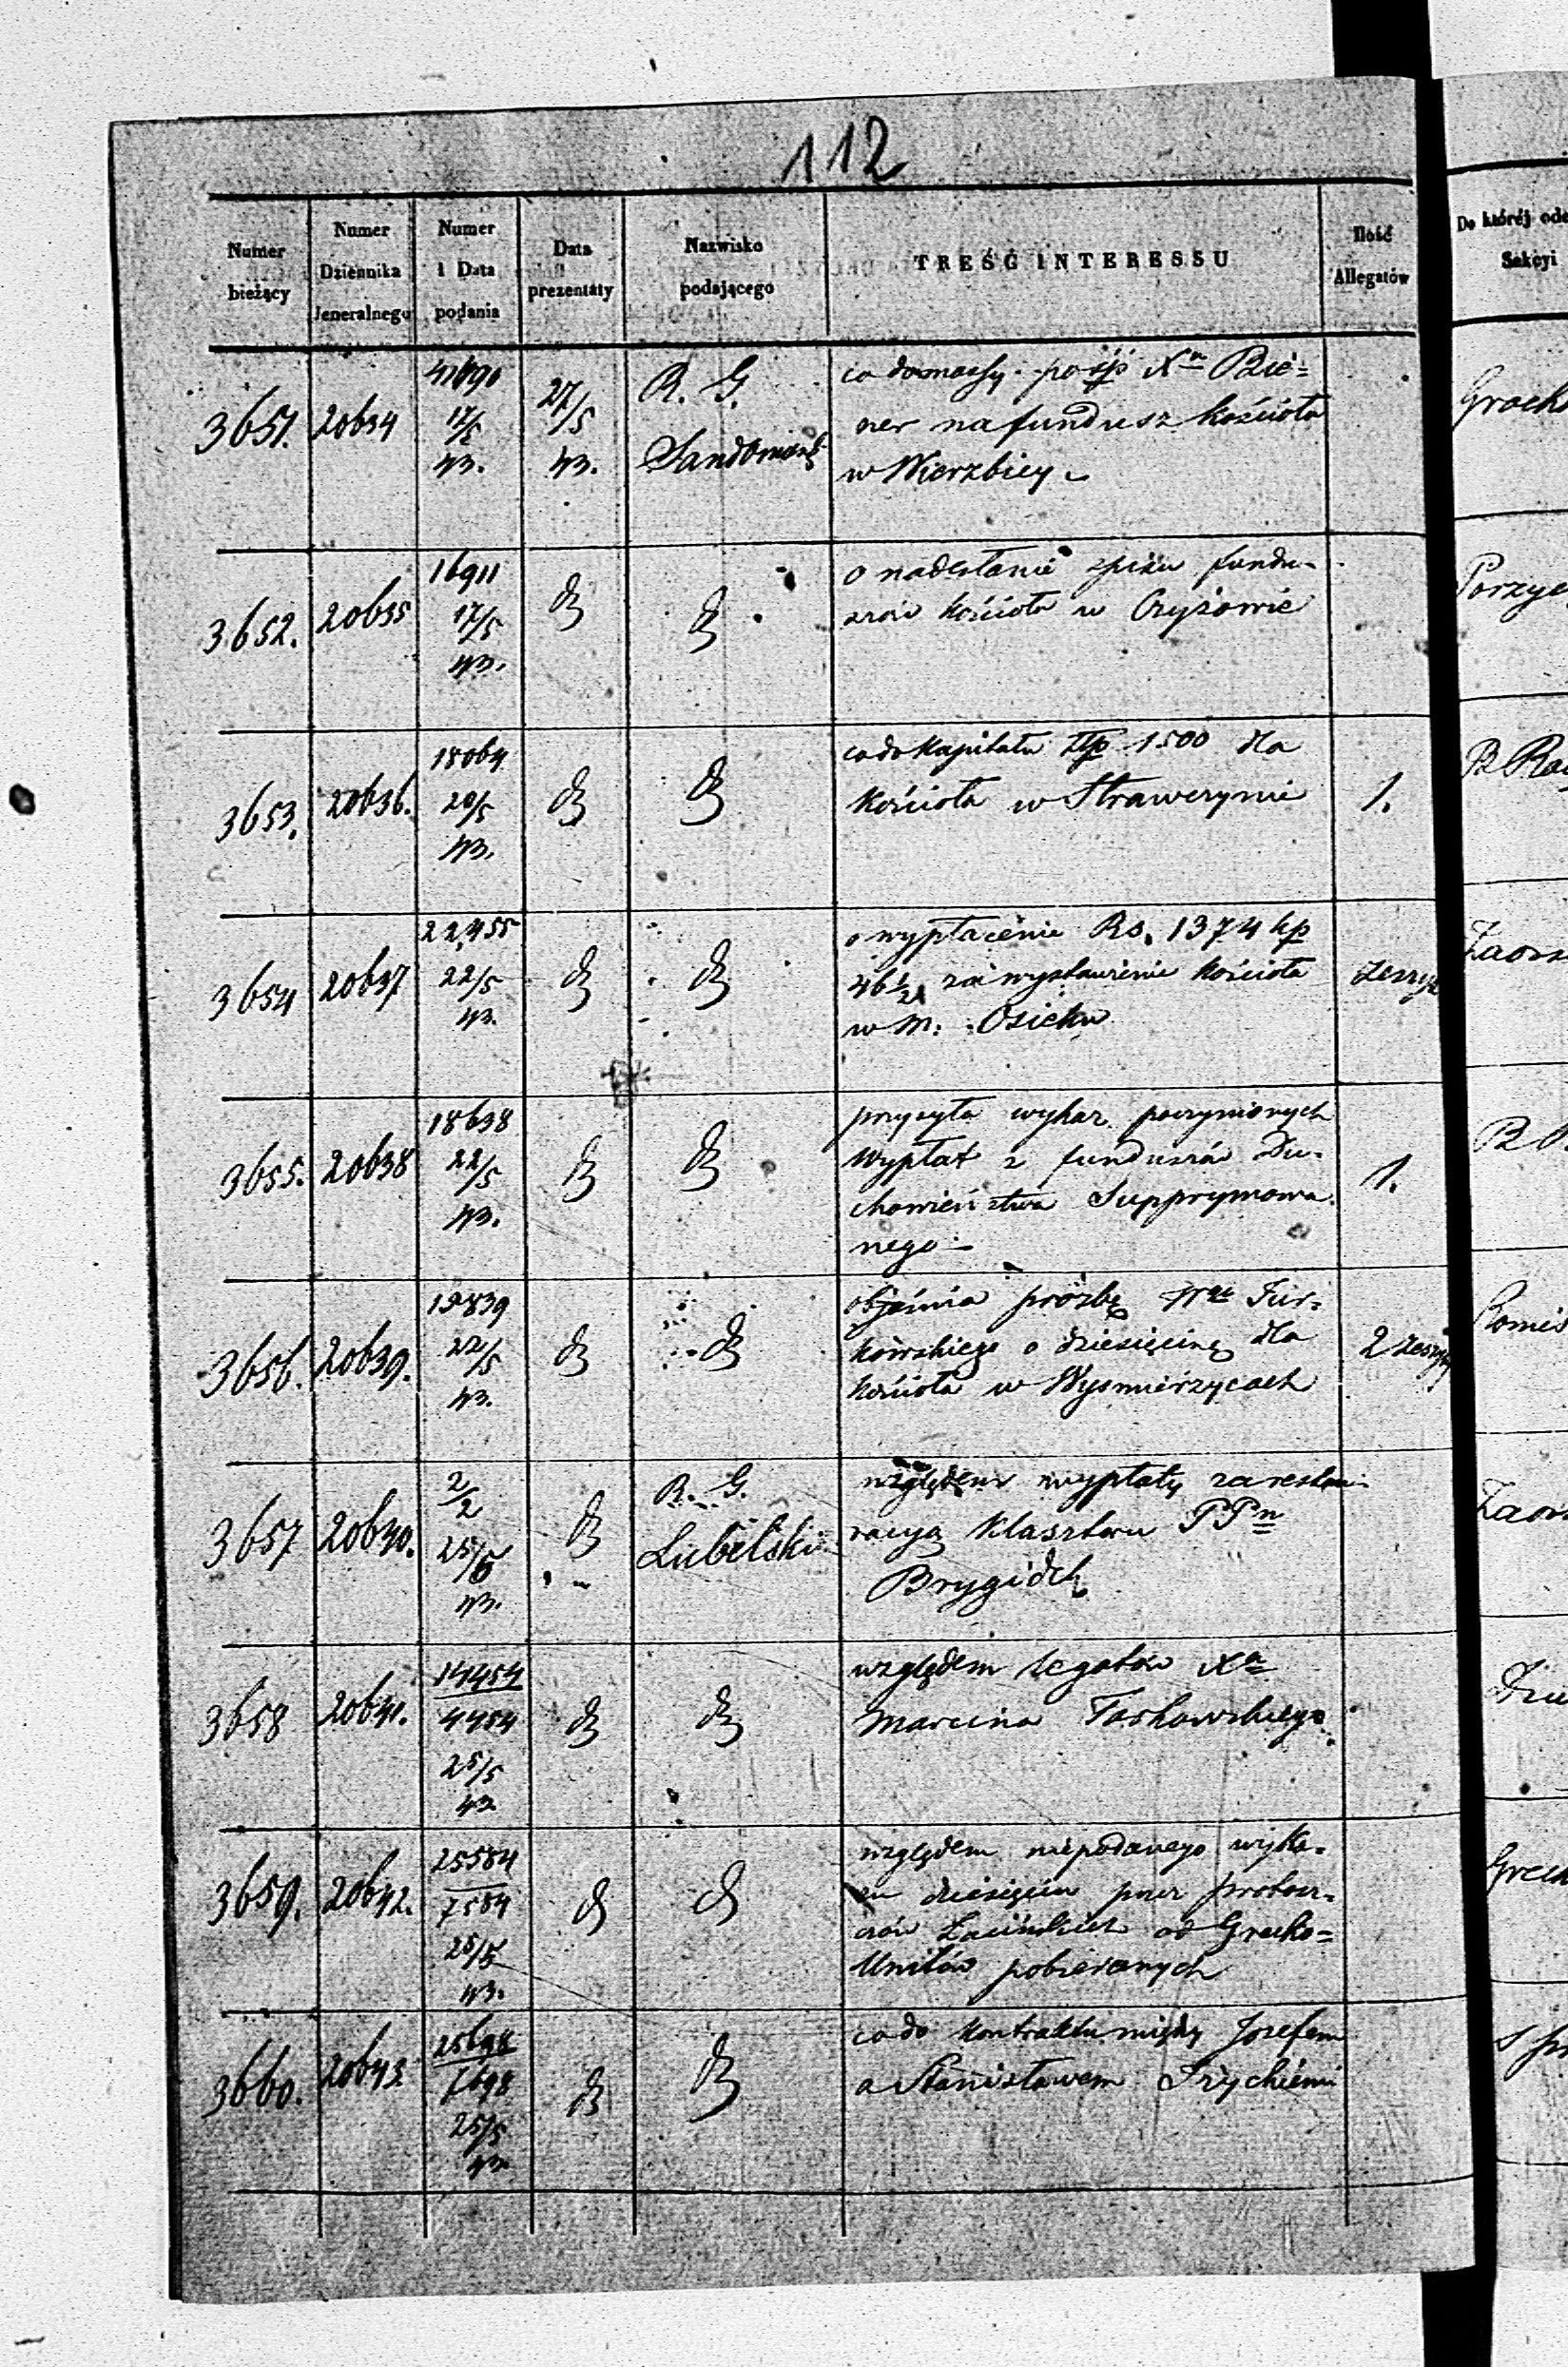 112
Numer bieżący | Numer Dziennika Jeneralnego | Numer i Data podania | Data prezentaty | Nazwisko podającego | TREŚĆ INTERESSU | Ilość Allegatów
Do któréj Sekcyi
3651. 20634 17/5 43. 27/5 43. R. G. Sandomierś
co do massy po śp Xn Bie=
ner na fundusz kościoła
w Wierzbicy
3652. 20635 16911 17/5 43. dto dto
o nadesłanie spisu fundu-
szów kościoła w Czyżowie
3653. 20636. 18064 20/5 43. dto dto 1.
co do kapitału Złp 1500 dla
kościoła w
3654 20637 22,455 22/5 43. dto dto zeszyt
o wypłacenie Rs. 1374 kp
46½ za wystawienie kościoła
w m. Osieku
3655. 20638 18638 22/5 43. dto dto 1.
przysyła wykaz poczynionych
wypłat z funduszów Du-
chowieństwa Supprymowa
nego
3656. 20639. 19839 22/5 43. dto dto 2 zeszyty
objaśnia prośbę Fir-
kowskiego o dziesięcinę dla
kościoła w Wyśmierzycach
3657 20640. 2/2 25/5 43. dto R. G. Lubelski
względem wypłaty za restau-
racyą klasztoru PPn
Brygidek
3658 20641. 14454 4454 25/5 43 dto dto
względem legatów Xa
Marcina Tarkowskiego
3659. 20642. 25584 7584 25/5 43. dto dto
względem niepodanego wyka-
zu dziesięcin przez probosz-
czów Łacińskich od Grecko=
Unitów pobieranych
3660. 20643. 25698 7698 25/5 43. dto dto
co do kontraktu między Józefem
a Stanisławem